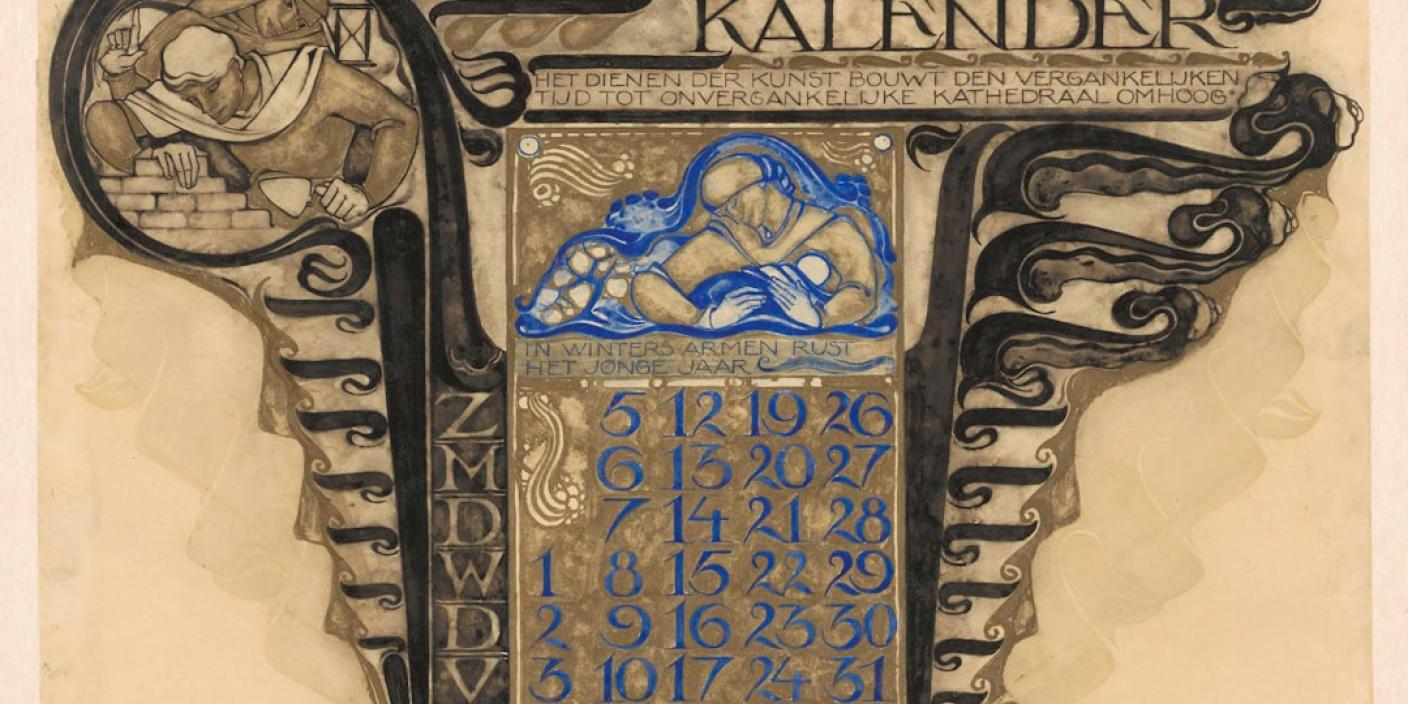 KALENDER
HET DIENEN DER KUNST BOUWT DEN VERGANKELIJKEN
TIJD TOT ONVERGANKELIJKE KATHEDRAAL OMHOOG
IN WINTERS ARMEN RUST
HET JONGE JAAR
Z 5 12 19 26
M 6 13 20 27
D 7 14 21 28
W 1 8 15 22 29
D 2 9 16 23 30
V 3 10 17 24 31